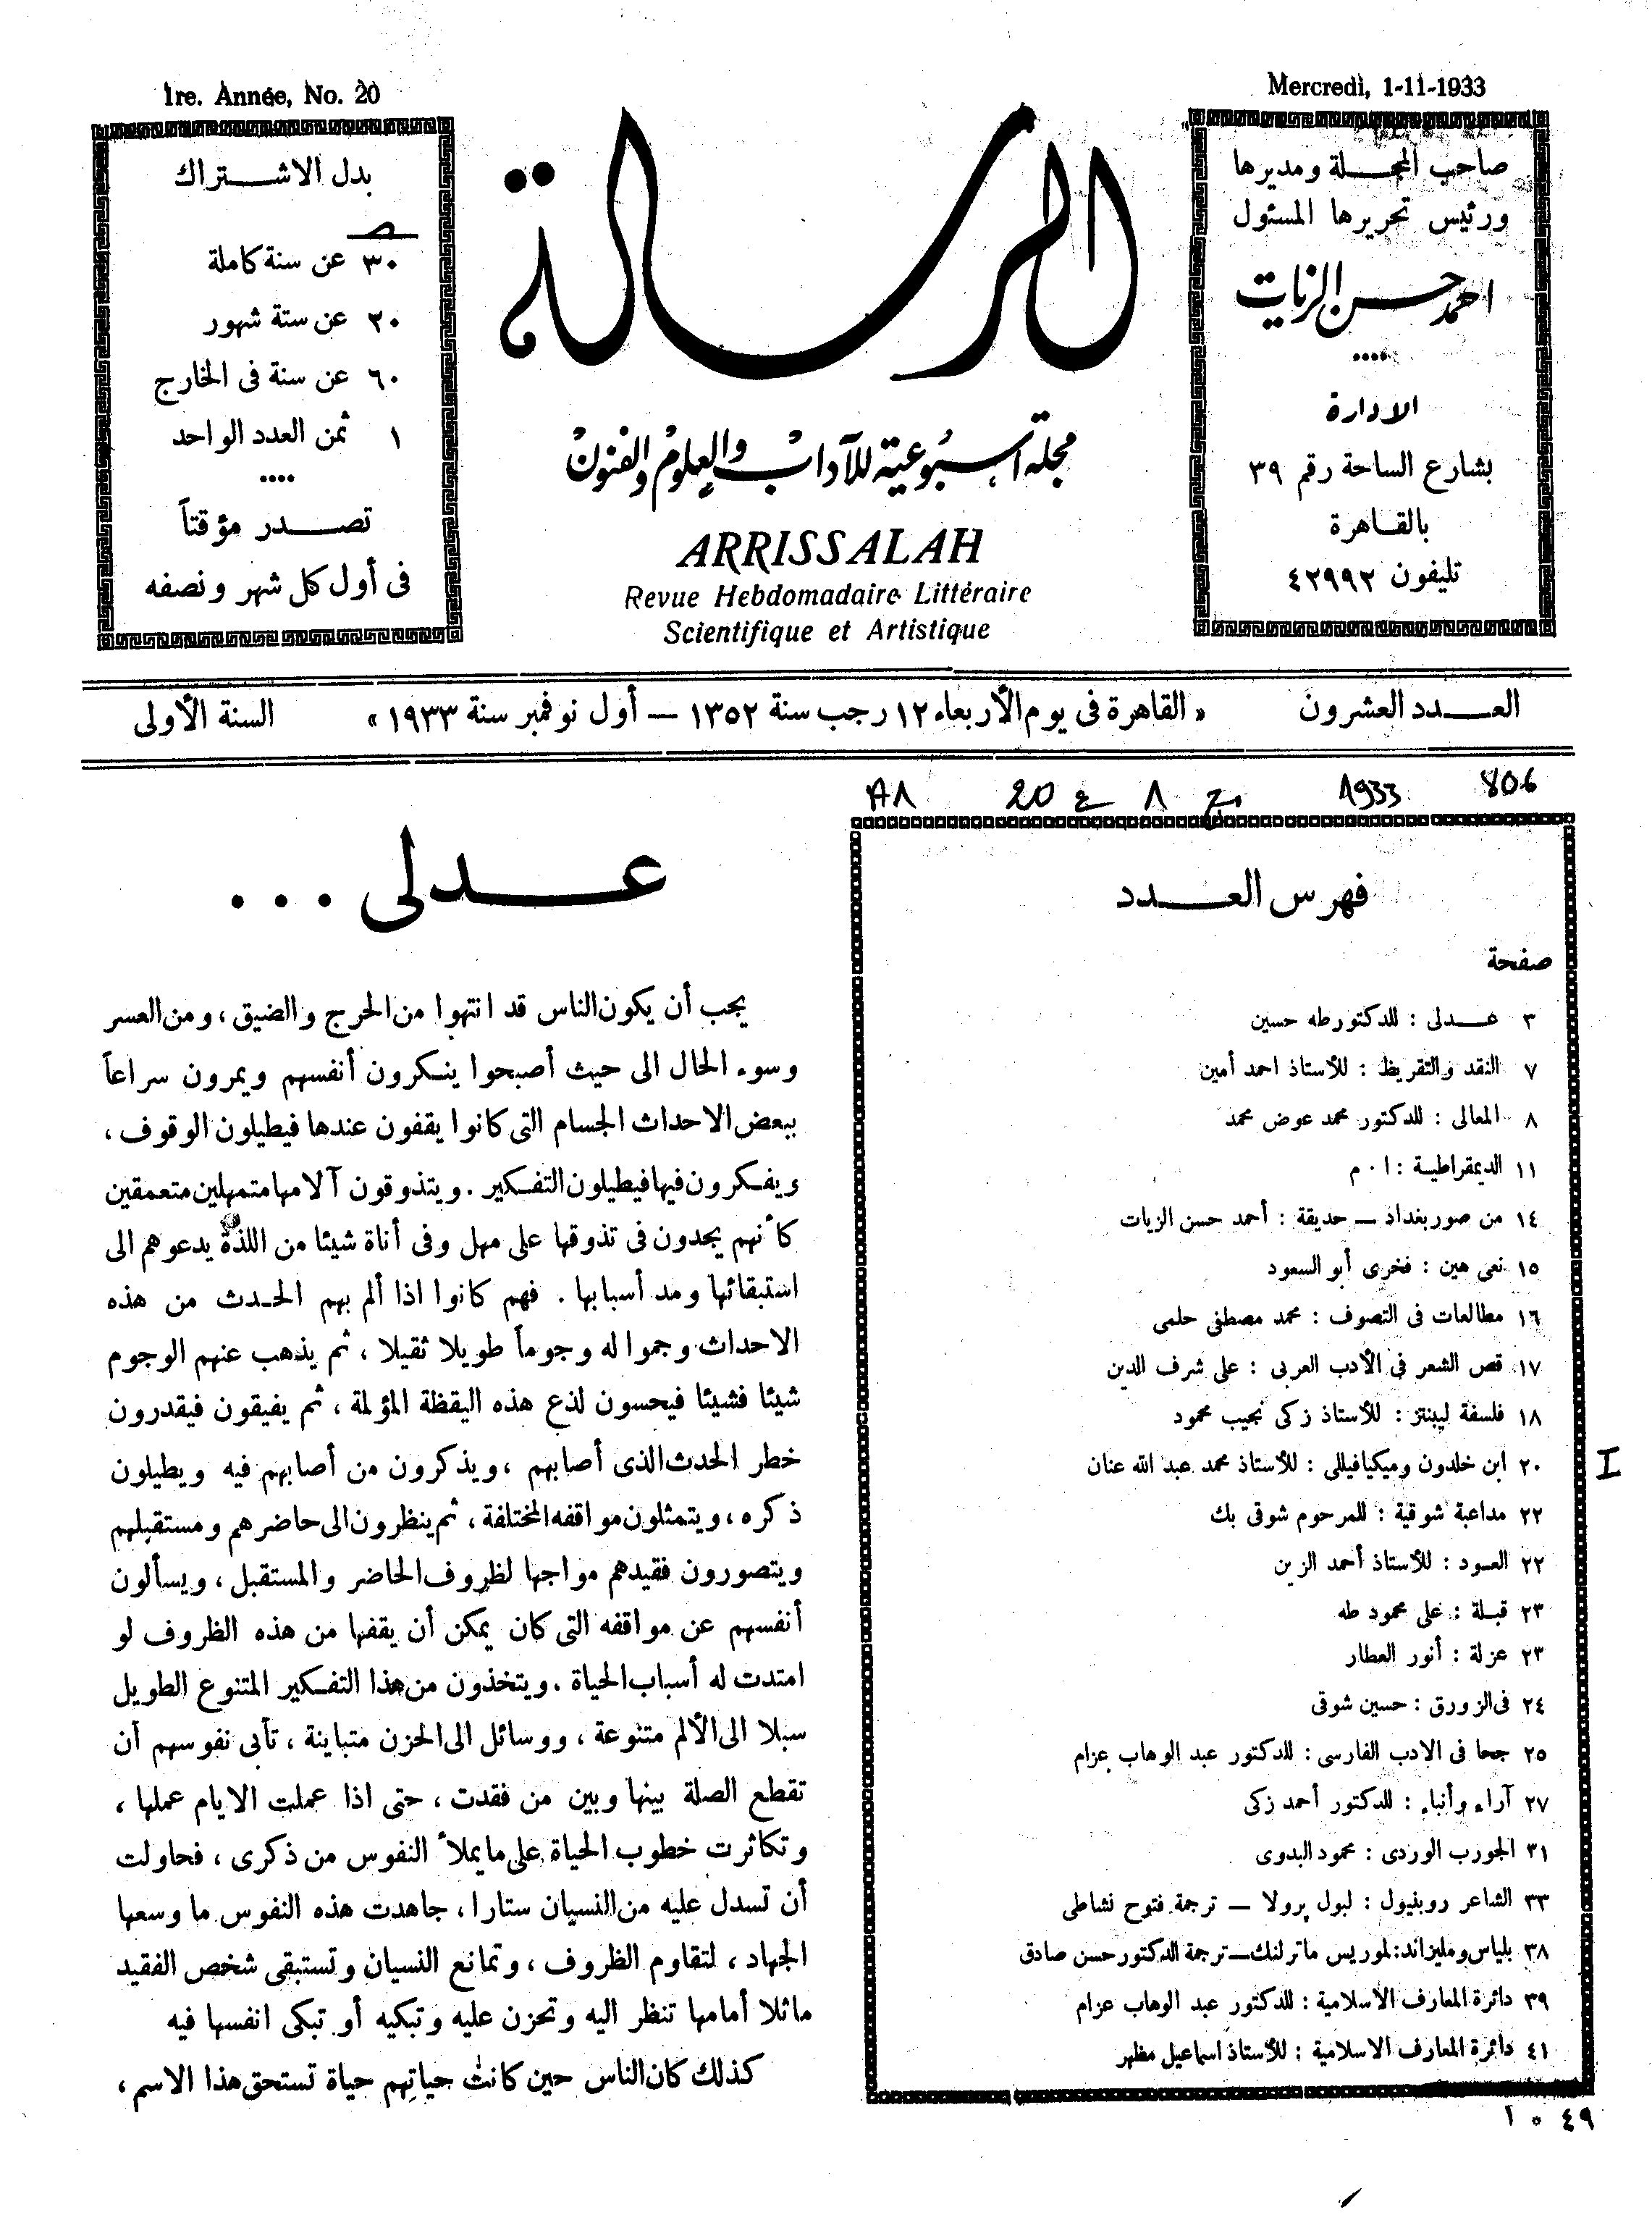 Mercredi, 1-11-1933
صاحب المجلة ومديرها
ورئيس تحريرها المسئول
احمد حسن الزيات
الادارة
بشارع الساحة رقم ٣٩
بالقاهرة
تليفون ٤٢٩٩٢
الرسالة
مجلة أسبوعية للآداب والعلوم والفنون
ARRISSALAH
Revue Hebdomadaire Littéraire
Scientifique et Artistique
1re. Année, No. 20
بدل الاشتراك
ص
٣٠ عن سنة كاملة
٢٠ عن ستة شهور
٦٠ عن سنة فى الخارج
١ ثمن العدد الواحد
تصدر مؤقتاً
فى أول كل شهر ونصفه
العدد العشرون «القاهرة فى يوم الأربعاء ١٢ رجب سنة ١٣٥٢ — أول نوفمبر سنة ١٩٣٣» السنة الأولى
806 1933 مج ١ ع 20 A1
فهرس العدد
صفحة
٣ عدلى : للدكتور طه حسين
٧ النقد والتقريظ : للأستاذ احمد أمين
٨ المعالى : للدكتور محمد عوض محمد
١١ الديمقراطية : ا . م
١٤ من صور بغداد — حديقة : أحمد حسن الزيات
١٥ نعى هين : فخرى أبو السعود
١٦ مطالعات فى التصوف : محمد مصطفى حلمى
١٧ قص الشعر فى الأدب العربى : على شرف الدين
١٨ فلسفة ليبنتز : للأستاذ زكى نجيب محمود
٢٠ ابن خلدون وميكيافيللى : للأستاذ محمد عبد الله عنان
I
٢٢ مداعبة شوقية : للمرحوم شوقى بك
٢٢ العود : للأستاذ أحمد الزين
٢٣ قبلة : على محمود طه
٢٣ عزلة : أنور العطار
٢٤ فى الزورق : حسين شوقى
٢٥ جحا فى الادب الفارسى : للدكتور عبد الوهاب عزام
٢٧ آراء وأنباء : للدكتور أحمد زكى
٣١ الجورب الوردى : محمود البدوى
٣٣ الشاعر روبنيول : لبول پرولا — ترجمة فتوح نشاطى
٣٨ بلياس ومليزاند : لموريس ماترلنك — ترجمة الدكتور حسن صادق
٣٩ دائرة المعارف الاسلامية : للدكتور عبد الوهاب عزام
٤١ دائرة المعارف الاسلامية : للأستاذ اسماعيل مظهر
٤٩ * ١
عدلى ...
يجب أن يكون الناس قد انتهوا من الحرج والضيق ، ومن العسر
وسوء الحال الى حيث أصبحوا ينكرون أنفسهم ويمرون سراعاً
ببعض الاحداث الجسام التى كانوا يقفون عندها فيطيلون الوقوف ،
ويفكرون فيها فيطيلون التفكير . ويتذوقون آلامها متمهلين متعمقين
كأنهم يجدون فى تذوقها على مهل وفى أناة شيئا من اللذة يدعوهم الى
استبقائها ومد أسبابها . فهم كانوا اذا ألم بهم الحدث من هذه
الاحداث وجموا له وجوماً طويلا ثقيلا ، ثم يذهب عنهم الوجوم
شيئا فشيئا فيحسون لذع هذه اليقظة المؤلمة ، ثم يفيقون فيقدرون
خطر الحدث الذى أصابهم ، ويذكرون من أصابهم فيه ويطيلون
ذكره ، ويتمثلون مواقفه المختلفة ، ثم ينظرون الى حاضرهم ومستقبلهم
ويتصورون فقيدهم مواجها لظروف الحاضر والمستقبل ، ويسألون
أنفسهم عن مواقفه التى كان يمكن أن يقفها من هذه الظروف لو
امتدت له أسباب الحياة . ويتخذون من هذا التفكير المتنوع الطويل
سبلا الى الألم متنوعة ، ووسائل الى الحزن متباينة ، تأبى نفوسهم أن
تقطع الصلة بينها وبين من فقدت ، حتى اذا عملت الايام عملها ،
وتكاثرت خطوب الحياة على ما يملأ النفوس من ذكرى ، فحاولت
أن تسدل عليه من النسيان ستارا ، جاهدت هذه النفوس ما وسعها
الجهاد ، لتقاوم الظروف ، وتمانع النسيان وتستبقى شخص الفقيد
ماثلا أمامها تنظر اليه وتحزن عليه وتبكيه أو تبكى انفسها فيه
كذلك كان الناس حين كانت حياتهم حياة تستحق هذا الاسم ،